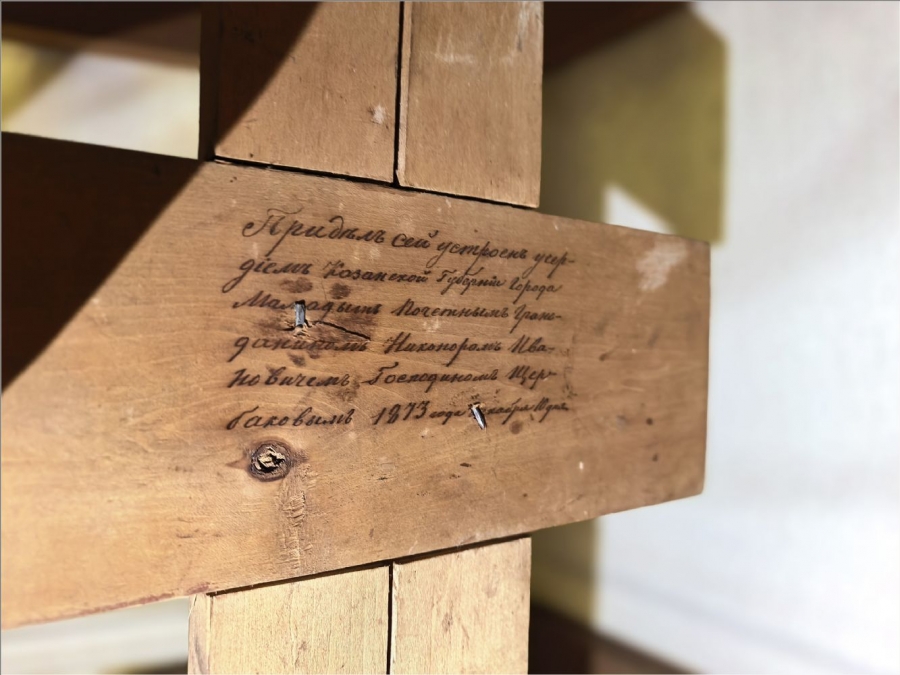 Придѣлъ сей устроенъ усер-
діемъ Козанской Губерніи Города
Мамадышъ Почетнымъ Граж-
даниномъ Никоноромъ Ива-
новичемъ Господиномъ Щер-
баковымъ 1873 года